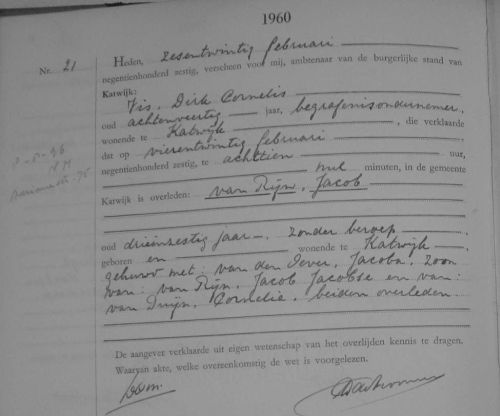 1960
Nr. 21
Heden, zesentwintig februari
negentienhonderd zestig, verscheen voor mij, ambtenaar van de burgerlijke stand van
Katwijk:
Vis, Dirk Cornelis
oud achtenveertig jaar, begrafenisondernemer,
wonende te Katwijk, die verklaarde
dat op vierentwintig februari
negentienhonderd zestig, te achttien uur,
nul minuten, in de gemeente
Katwijk is overleden: van Rijn, Jacob
oud drieënzestig jaar, zonder beroep
geboren en wonende te Katwijk
gehuwd met: van den Oever, Jacoba, zoon
van: van Rijn, Jacob Jacobsz en van:
van Duijn, Cornelia, beiden overleden.
De aangever verklaarde uit eigen wetenschap van het overlijden kennis te dragen.
Waarvan akte, welke overeenkomstig de wet is voorgelezen.